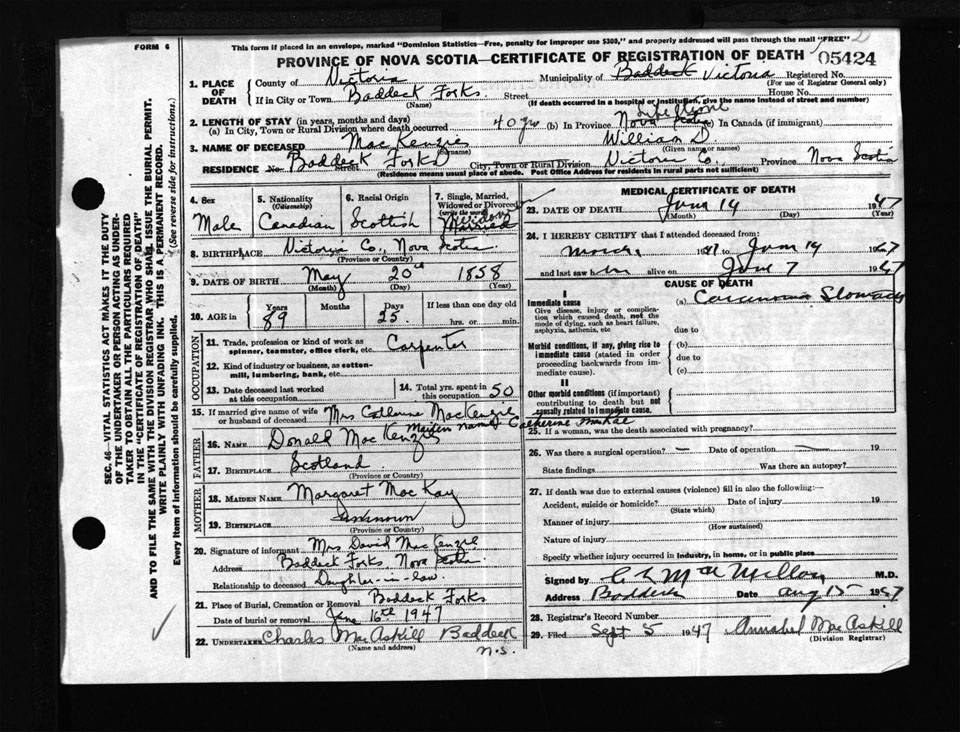 FORM 6
This form if placed in an envelope, marked "Dominion Statistics—Free, penalty for improper use $300," and properly addressed will pass through the mail "FREE"
PROVINCE OF NOVA SCOTIA—CERTIFICATE OF REGISTRATION OF DEATH
05424
1. PLACE OF DEATH
County of Victoria Municipality of Baddeck Victoria Registered No.
(For use of Registrar General only)
If in City or Town Baddeck Forks Street House No.
(Name) (If death occurred in a hospital or institution, give the name instead of street and number)
2. LENGTH OF STAY (in years, months and days)
(a) In City, Town or Rural Division where death occurred 40 yrs (b) In Province Life time Nova Scotia In Canada (if immigrant)
3. NAME OF DECEASED MacKenzie William D.
(name) (Given name or names)
RESIDENCE No. Baddeck Forks Street City, Town or Rural Division Victoria Co., Province Nova Scotia
(Residence means usual place of abode. Post Office Address for residents in rural parts not sufficient)
4. Sex
Male
5. Nationality (Citizenship)
Canadian
6. Racial Origin
Scottish
7. Single, Married, Widowed or Divorced (write the word)
Widower
Married
8. BIRTHPLACE Victoria Co., Nova Scotia
(Province or Country)
9. DATE OF BIRTH May 20th 1858
(Month) (Day) (Year)
10. AGE in
Years Months Days If less than one day old
89 25 hrs. or min.
OCCUPATION
11. Trade, profession or kind of work as spinner, teamster, office clerk, etc. Carpenter
12. Kind of industry or business, as cotton-mill, lumbering, bank, etc.
13. Date deceased last worked at this occupation
14. Total yrs. spent in this occupation 50
15. If married give name of wife or husband of deceased. Mrs Catherine MacKenzie
Maiden name Catherine McRae
FATHER
16. NAME Donald MacKenzie
17. BIRTHPLACE Scotland
(Province or Country)
MOTHER
18. MAIDEN NAME Margaret MacKay
19. BIRTHPLACE Unknown
(Province or Country)
20. Signature of informant Mrs David MacKenzie
Address Baddeck Forks, Nova Scotia
Relationship to deceased Daughter-in-law
21. Place of Burial, Cremation or Removal Baddeck Forks
Date of burial or removal June 16th 1947
22. UNDERTAKER Charles MacAskill Baddeck
(Name and address) N.S.
MEDICAL CERTIFICATE OF DEATH
23. DATE OF DEATH June 14 1947
(Month) (Day) (Year)
24. I HEREBY CERTIFY that I attended deceased from:
March 1947 to June 14 1947
and last saw him alive on June 7 1947
CAUSE OF DEATH
I
Immediate cause
Give disease, injury or complication which caused death, not the mode of dying, such as heart failure, asphyxia, asthenia, etc
(a) Carcinoma Stomach
due to
Morbid conditions, if any, giving rise to immediate cause (stated in order proceeding backwards from immediate cause).
(b)
due to
(c)
II
Other morbid conditions (if important) contributing to death but not causally related to immediate cause.
25. If a woman, was the death associated with pregnancy?
26. Was there a surgical operation? — Date of operation — 19
State findings Was there an autopsy?
27. If death was due to external causes (violence) fill in also the following:—
Accident, suicide or homicide? Date of injury 19
(State which)
Manner of injury
(How sustained)
Nature of injury
Specify whether injury occurred in industry, in home, or in public place
Signed by C L MacMillan M.D.
Address Baddeck Date Aug 15 1947
28. Registrar's Record Number
29. Filed Sept 5 1947 Annabel MacAskill
(Division Registrar)
SEC. 46—VITAL STATISTICS ACT MAKES IT THE DUTY
OF THE UNDERTAKER OR PERSON ACTING AS UNDER-
TAKER TO OBTAIN ALL THE PARTICULARS REQUIRED
IN THE "CERTIFICATE OF REGISTRATION OF DEATH"
AND TO FILE THE SAME WITH THE DIVISION REGISTRAR WHO SHALL ISSUE THE BURIAL PERMIT.
WRITE PLAINLY WITH UNFADING INK. THIS IS A PERMANENT RECORD.
Every item of information should be carefully supplied. (See reverse side for instructions.)